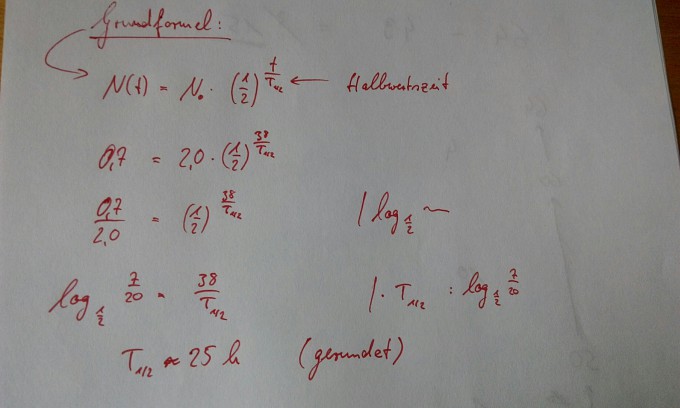 Grundformel:
N(t) = N₀ · (1/2)^(t/T₁/₂) ← Halbwertszeit
0,7 = 2,0 · (1/2)^(38/T₁/₂)
0,7/2,0 = (1/2)^(38/T₁/₂) | log₁/₂ ~
log₁/₂ 7/20 = 38/T₁/₂ | · T₁/₂ : log₁/₂ 7/20
T₁/₂ ≈ 25 h (gerundet)